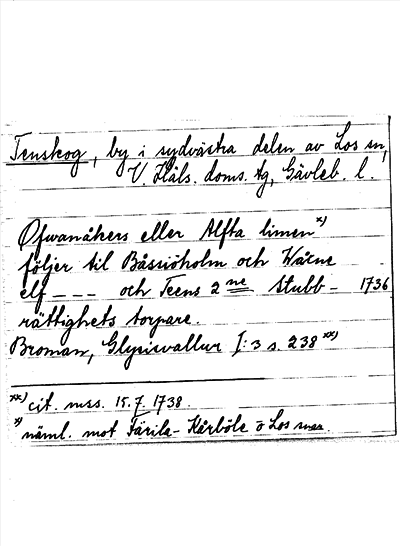 Tenskog, by i sydvästra delen av Los sn,
V. Häls. doms. tg, Gävleb. l.
Ofwanåkers eller Alfta limen x)
följer til Båssiöholm och Wäsne
elf --- och Teens 2 ne Stubb- 1736
rättighets torpare.
Broman, Glysisvallur I:3 s. 238 xx)
xx) cit. mss. 15.7.1738.
x) näml. mot Färila-Kårböle o Los snar